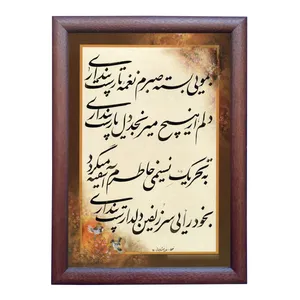 بمویی بسته صبرم نغمهٔ تار است پنداری
دلم از هیچ میرنجد دل یار است پنداری
به تحریک نسیمی خاطرم آشفته میگردد
بخود رایی سر زلفین دلدار است پنداری